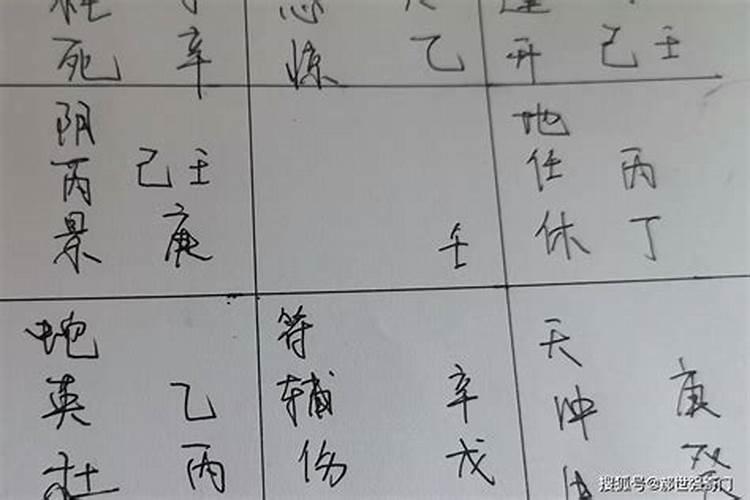 死 辛
惊 乙
开 己壬
阴
丙 己壬
景 庚
壬
地
任 丙
休 丁
蛇
英 乙
杜 丙
符
辅 辛
伤 戊
天
冲 庚
癸